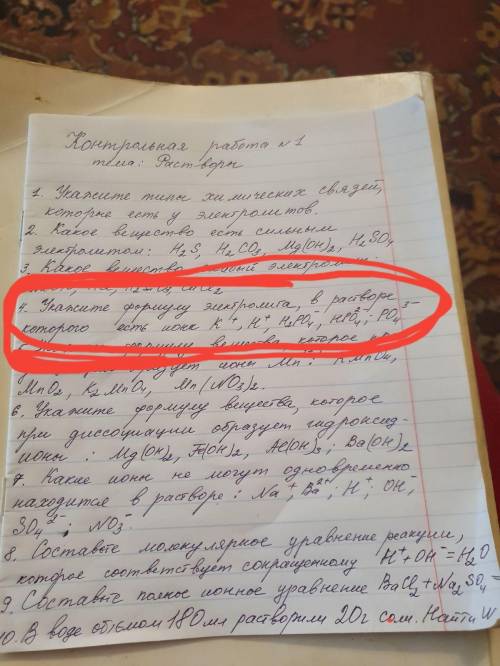 Контрольная работа №1
тема: Растворы
1. Укажите типы химических связей,
которые есть у электролитов.
2. Какое вещество есть сильным
электролитом: H₂S, H₂CO₃, Mg(OH)₂, H₂SO₄
3. Какое вещество
4. Укажите формулу электролита, в растворе
которого есть ионы K⁺, H⁺, H₂PO₄⁻, HPO₄²⁻; PO₄³⁻
5. формулу вещества которое
ионы Mn: KMnO₄,
MnO₂, K₂MnO₄, Mn(NO₃)₂.
6. Укажите формулу вещества, которое
при диссоциации образует гидроксид-
ионы: Mg(OH)₂, Fe(OH)₂, Al(OH)₃; Ba(OH)₂
7. Какие ионы не могут одновременно
находится в растворе: Na⁺; Ba²⁺; H⁺; OH⁻,
SO₄²⁻; NO₃⁻.
8. Составьте молекулярное уравнение реакции,
которое соответствует сокращенному H⁺+OH⁻=H₂O
9. Составьте полное ионное уравнение BaCl₂+Na₂SO₄=
10. В воде объёмом 180мл растворили 20г соли. Найти W